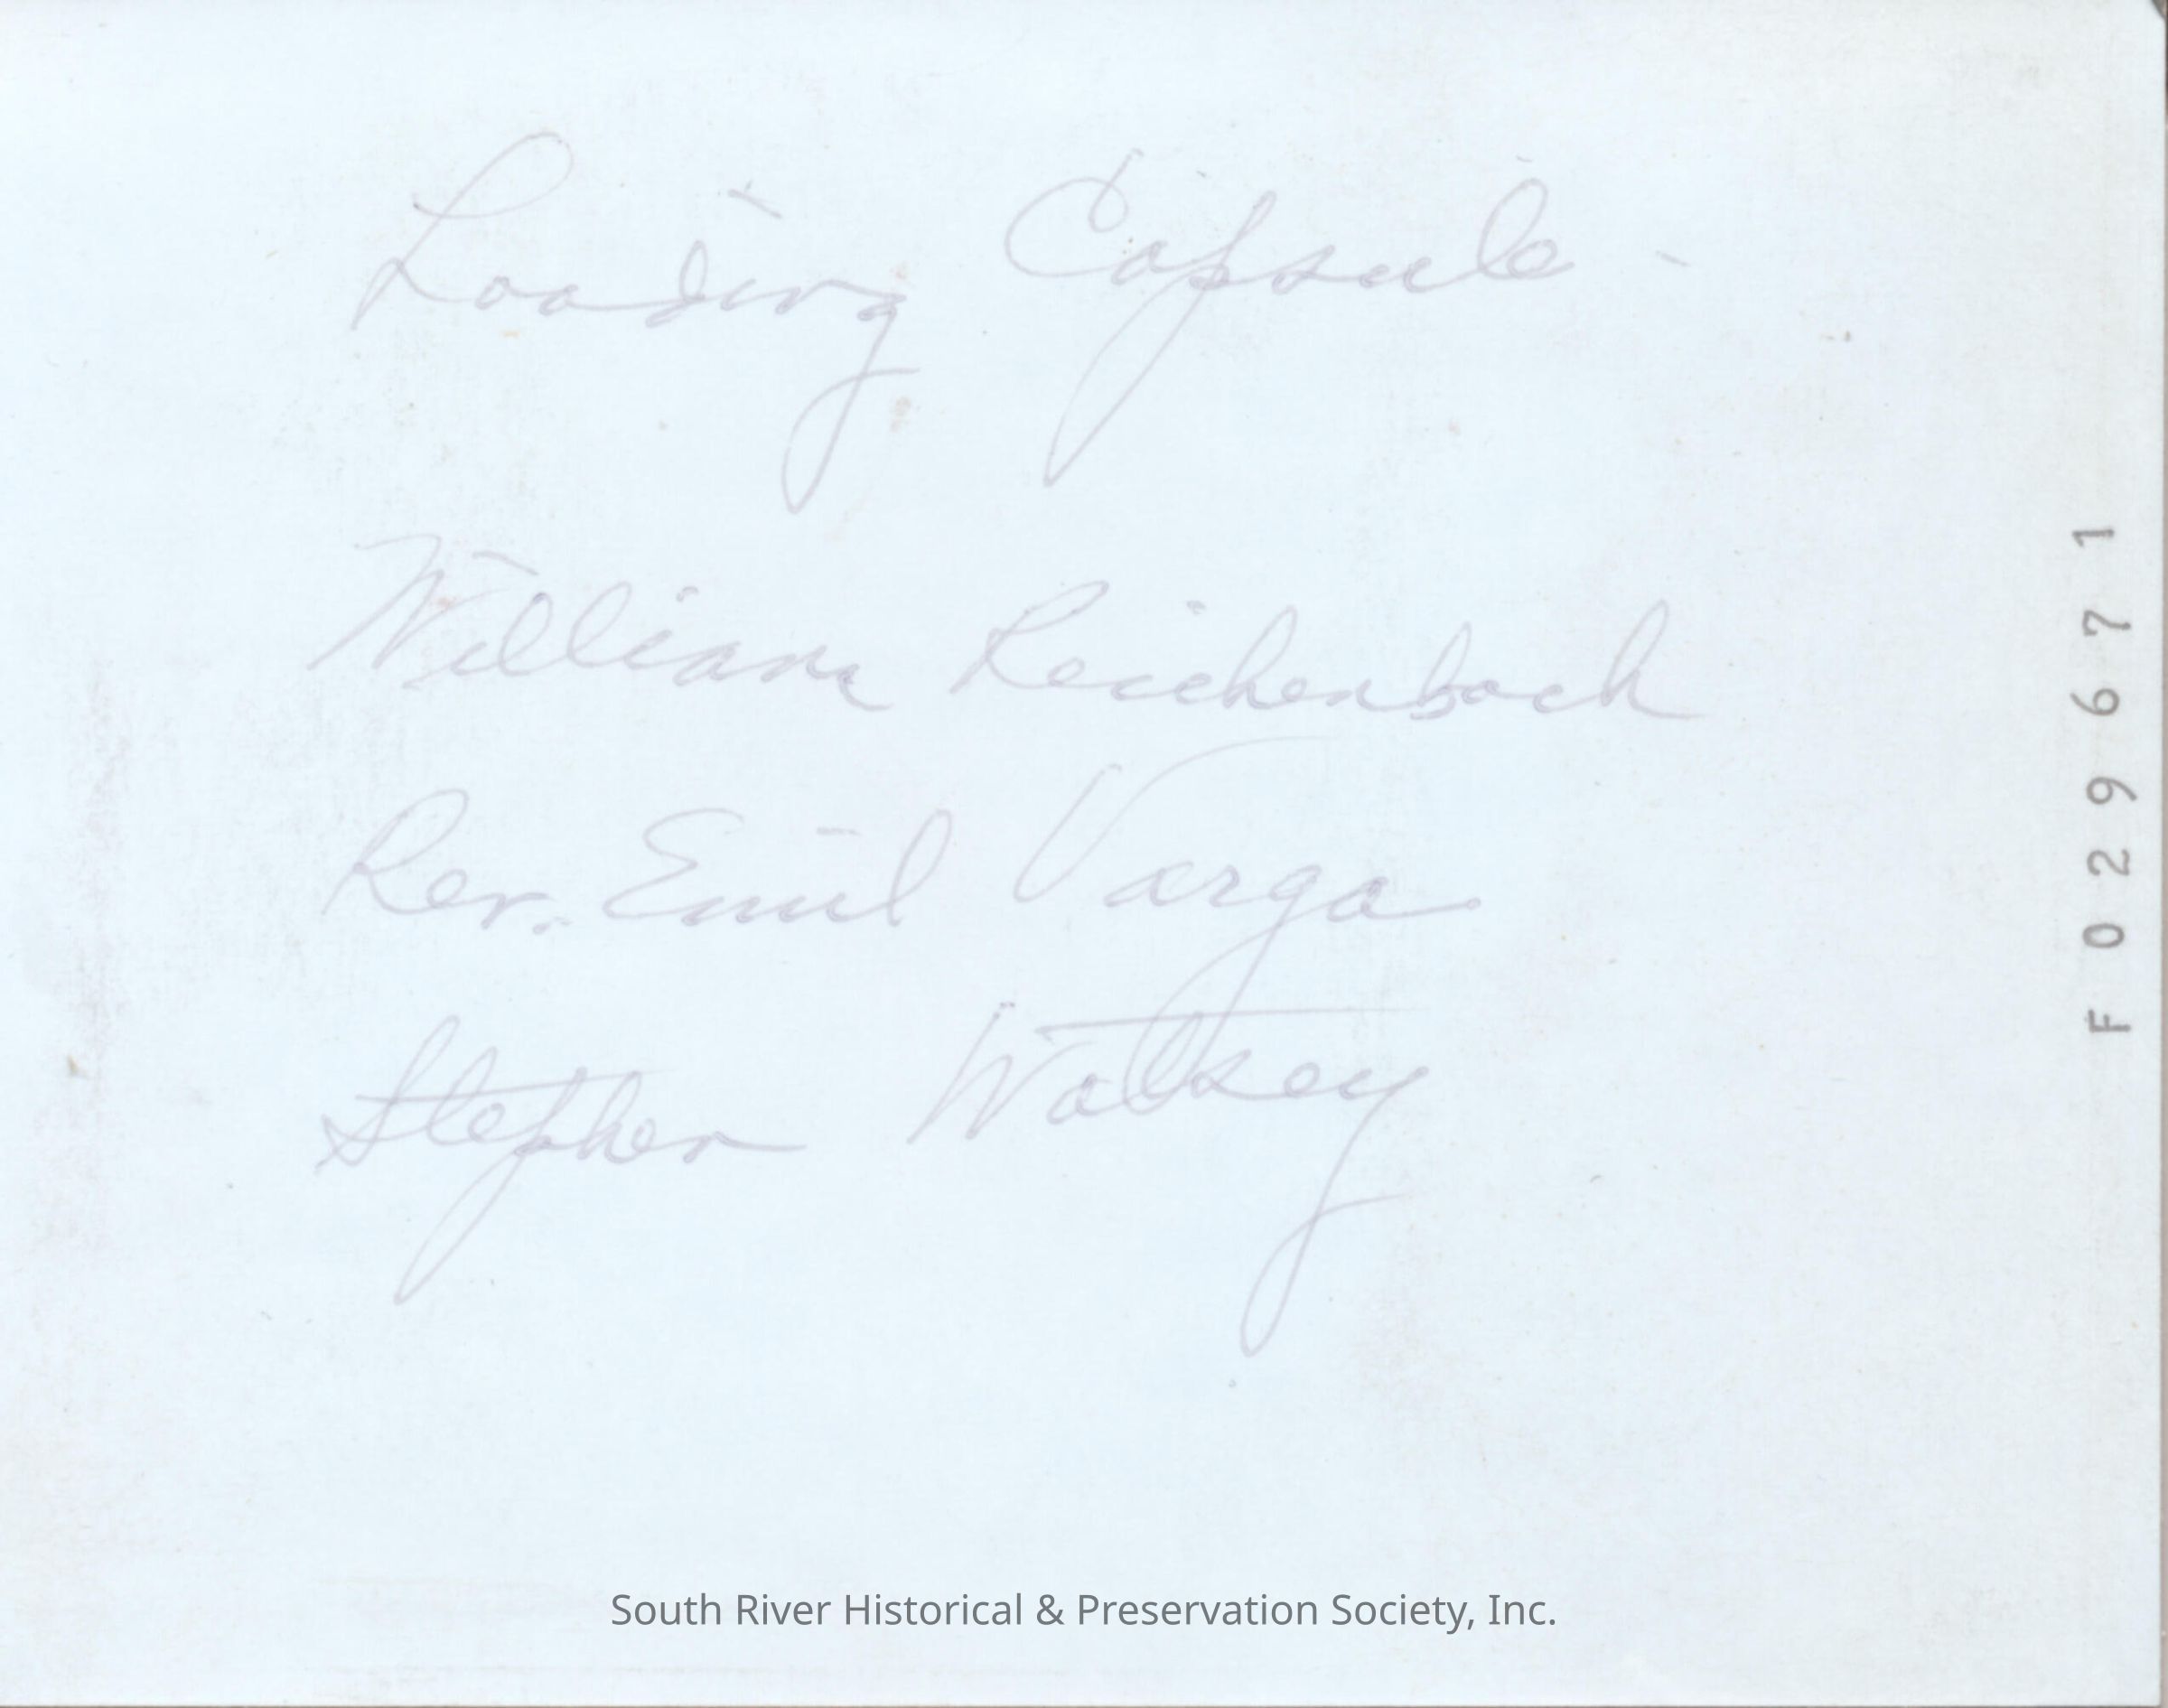 Loading Capsule -
William Reichenbach
Rev. Emil Varga
Stephen Watsey
F029671
South River Historical & Preservation Society, Inc.